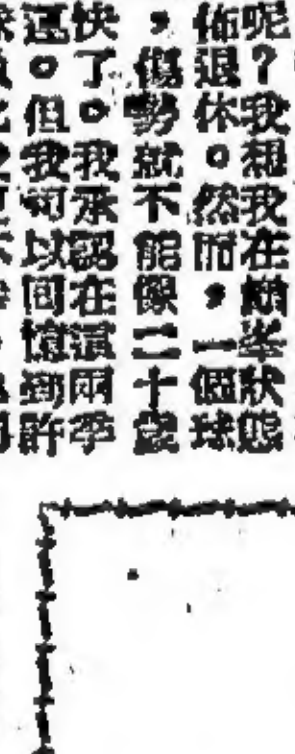 呢?我想我在巔峯狀態
佈退休。然而,一個球
,傷勢就不能像二十歲
快了。我承認在這兩季
運。但我可以回憶到許